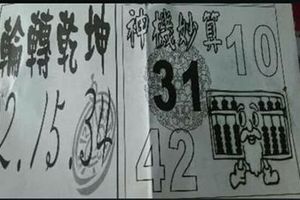 輪轉乾坤
2.15.34
神機妙算
10
31
42